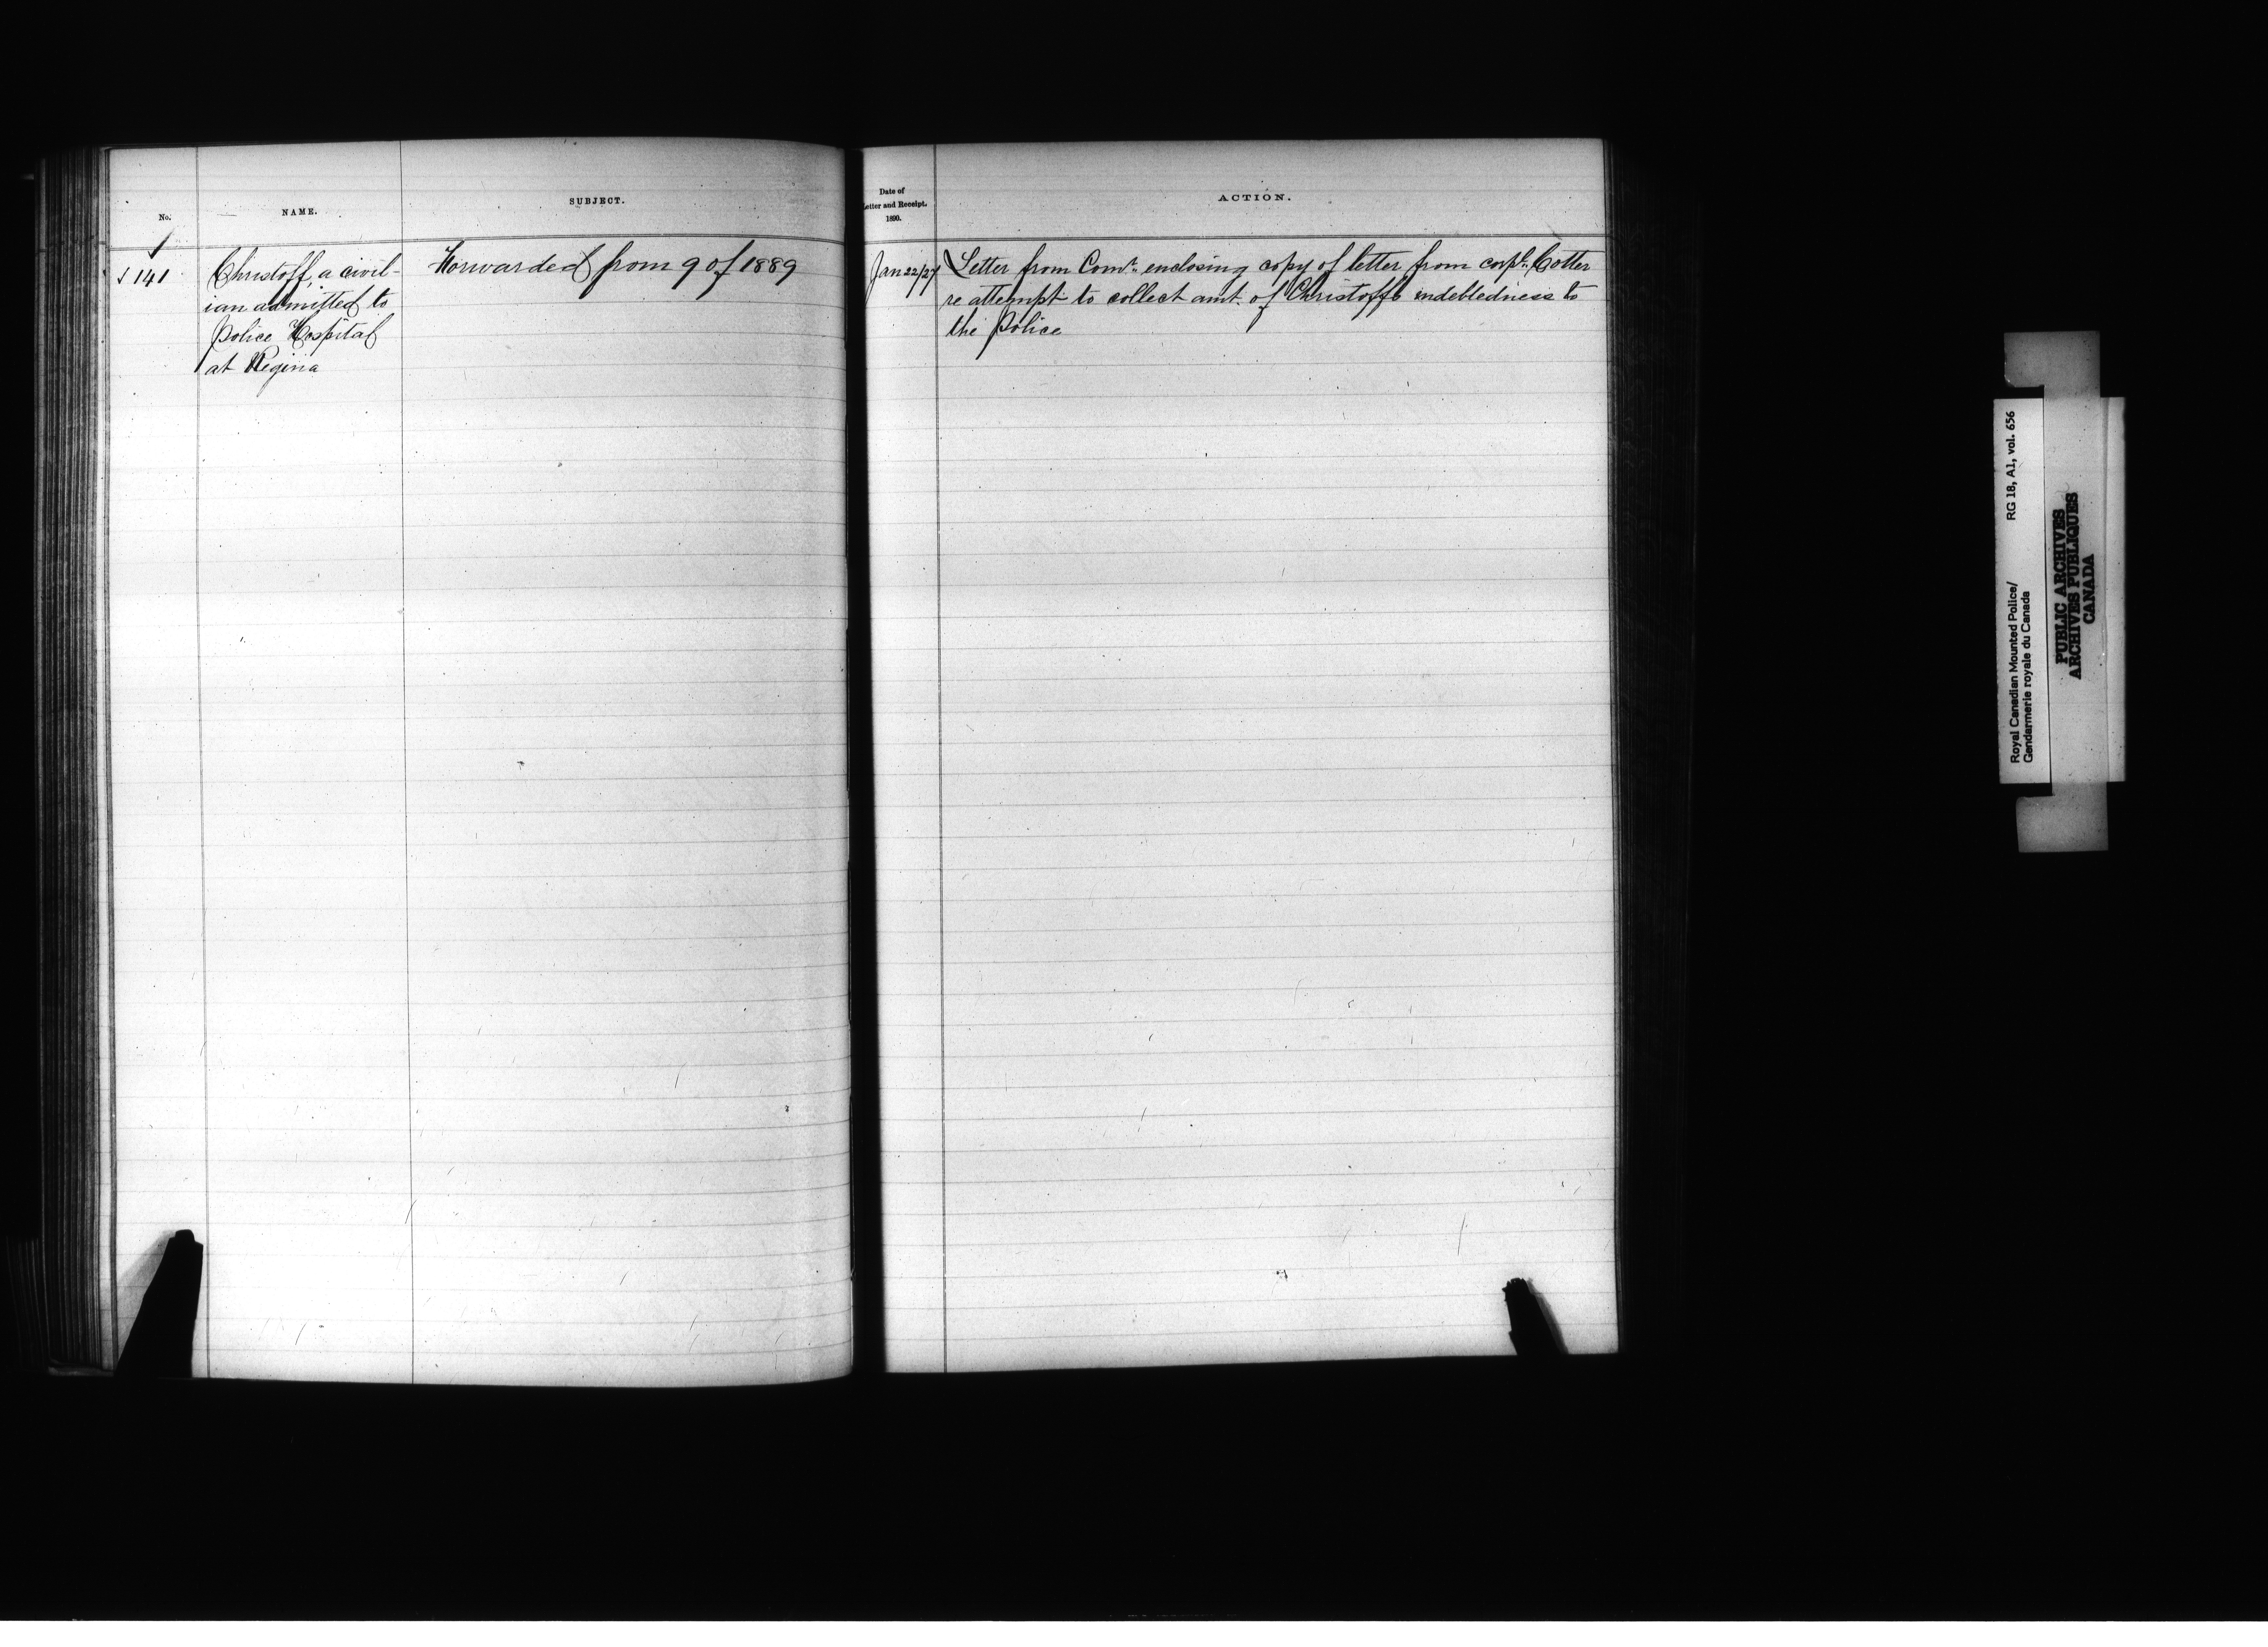 No.
NAME.
SUBJECT.
✓
✓ 141
Christoff, a civil-
ian admitted to
Police Hospital
at Regina
Forwarded from 9 of 1889
Date of
Letter and Receipt.
1890.
ACTION.
Jan 22/27
Letter from Comr. enclosing copy of letter from corpl. Cotter
re attempt to collect amt. of Christoffs indebtedness to
the Police
Royal Canadian Mounted Police/ RG 18, A1, vol. 656
Gendarmerie royale du Canada
PUBLIC ARCHIVES
ARCHIVES PUBLIQUES
CANADA